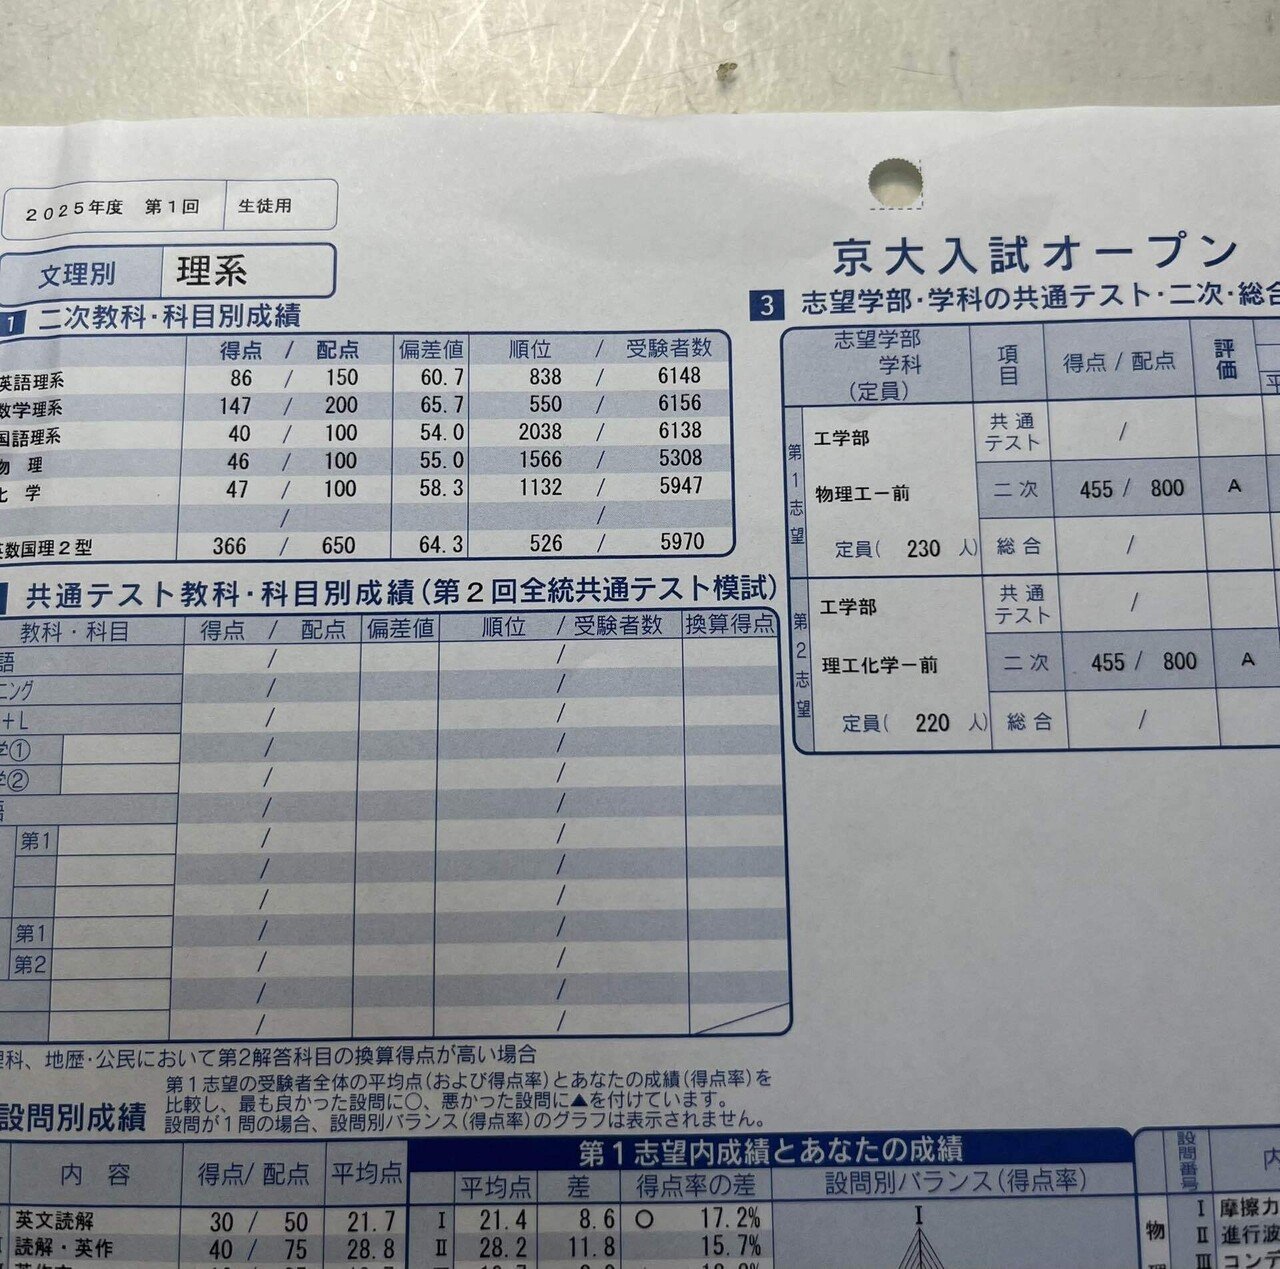 2025年度 第1回 生徒用
文理別 理系
京大入試オープン
1 二次教科・科目別成績
得点 / 配点 偏差値 順位 / 受験者数
英語理系 86 / 150 60.7 838 / 6148
数学理系 147 / 200 65.7 550 / 6156
国語理系 40 / 100 54.0 2038 / 6138
物理 46 / 100 55.0 1566 / 5308
化学 47 / 100 58.3 1132 / 5947
/ /
英数国理2型 366 / 650 64.3 526 / 5970
3 志望学部・学科の共通テスト・二次・総合
志望学部 学科 (定員) 項目 得点 / 配点 評価 平
第1志望 工学部 共通テスト /
物理工ー前 二次 455 / 800 A
定員( 230 人) 総合 /
第2志望 工学部 共通テスト /
理工化学ー前 二次 455 / 800 A
定員( 220 人) 総合 /
共通テスト教科・科目別成績(第2回全統共通テスト模試)
教科・科目 得点 / 配点 偏差値 順位 / 受験者数 換算得点
語 / /
ニング / /
+L / /
学① / /
学② / /
語 / /
第1 / /
/ /
/ /
第1 / /
第2 / /
/ /
/ /
理科、地歴・公民において第2解答科目の換算得点が高い場合
設問別成績
第1志望の受験者全体の平均点(および得点率)とあなたの成績(得点率)を
比較し、最も良かった設問に○、悪かった設問に▲を付けています。
設問が1問の場合、設問別バランス(得点率)のグラフは表示されません。
内容 得点 / 配点 平均点 第1志望内成績とあなたの成績
平均点 差 得点率の差 設問別バランス(得点率)
英文読解 30 / 50 21.7 Ⅰ 21.4 8.6 ○ 17.2% Ⅰ
読解・英作 40 / 75 28.8 Ⅱ 28.2 11.8 15.7%
設問番号 内
物 Ⅰ 摩擦力
Ⅱ 進行波
理 Ⅲ コンデ